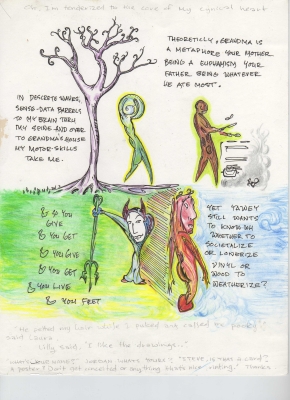 I'm tenderized to the core of my cynical heart
THEORETICLLY, GRANDMA IS
A METAPHORE YOUR MOTHER
BEING A EUPHANISM YOUR
FATHER BEING WHATEVER
HE ATE MOST".
IN DISCRETE WAVES,
SENSE-DATA BARRELS
TO MY BRAIN THRU
MY SPINE AND OVER
TO GRANDMA'S HOUSE
MY MOTOR-SKILLS
TAKE ME.
& SO YOU
GIVE
& YOU GET
& YOU GIVE
& YOU GET
& YOU LIVE
& YOU FEET
YET YAWEY
STILL WANTS
TO KNOW MY
WHETHER TO
SOCIETALIZE
OR LONERIZE
VINYL OR
WOOD TO
WEATHERIZE?
"He pulled my hair while I puked and called to
said Laura
Lilly said, "I like the drawings..."
a poster? Don't get conceited or anything that's nye
Thanks